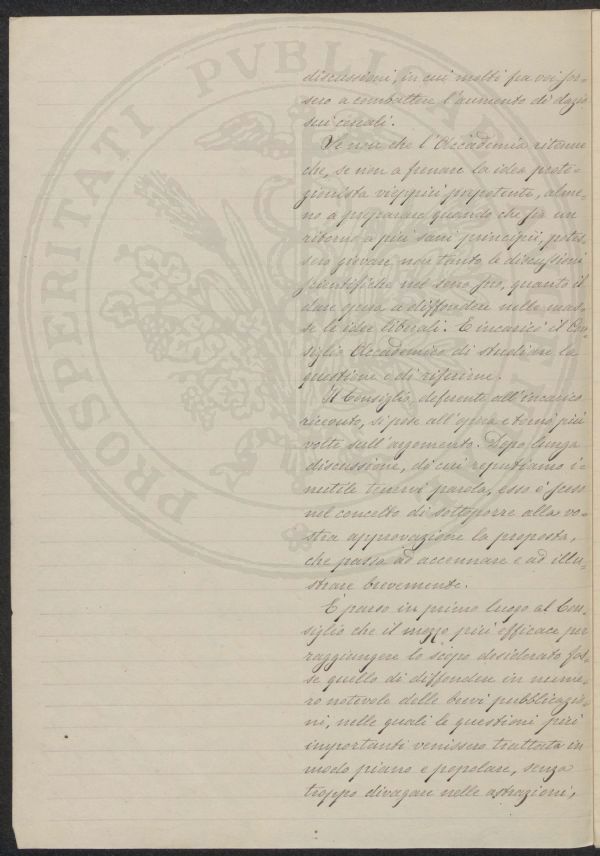 PROSPERITATI PVBLICAE
discussioni, in cui molti fra voi for=
sero a combattere l'aumento di dazio
sui cereali.
Se non che l'Accademia ritenne
che, se non a frenare la idea prote=
zionista vieppiù prepotente, alme=
no a preparare quando che sia un
ritorno a più sani principii, potes=
sero giovare non tanto le discussioni
scientifiche nel seno suo, quanto il
dare opera a diffondere nelle mas=
se le idee liberali. E incaricò il Con=
siglio Accademico di studiare la
questione e di riferirne.
Il Consiglio, deferente all'incarico
ricevuto, si pose all'opera e tornò più
volte sull'argomento. Dopo lunga
discussione, di cui reputiamo i=
nutile tenervi parola, esso è sceso
nel concetto di sottoporre alla vo=
stra approvazione la proposta,
che passo ad accennare e ad illu=
strare brevemente.
È parso in primo luogo al Con=
siglio che il mezzo più efficace per
raggiungere lo scopo desiderato fos=
se quello di diffondere in nume=
ro notevole delle brevi pubblicazio=
ni, nelle quali le questioni più
importanti venissero trattate in
modo piano e popolare, senza
troppo divagare nelle astrazioni,